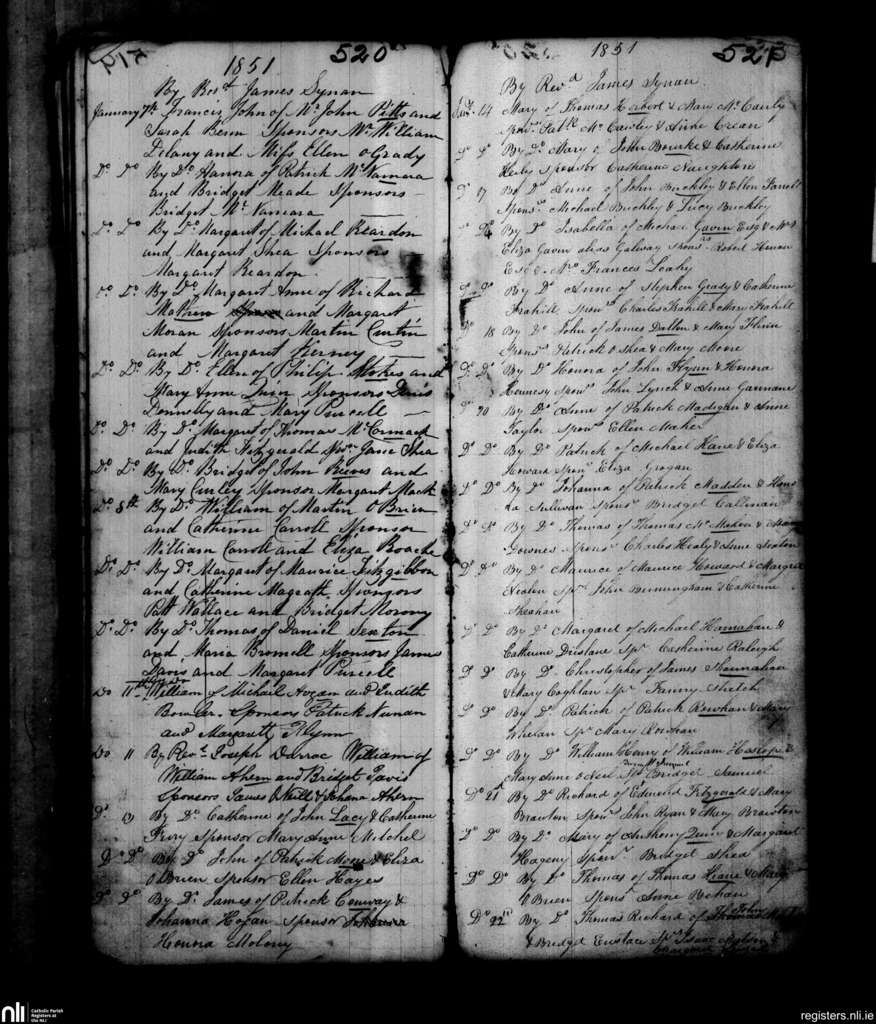 1851 520
By Revd James Synan
January 7th Francis John of Mr John Pitts and
Sarah Benn Sponsors Mr William
Delany and Miss Ellen O Grady
Do Do By Do Hanora of Patrick McNamara
and Bridget Meade Sponsors
Bridget McNamara
Do Do By Do Margaret of Michael Reardon
and Margaret Shea Sponsors
Margaret Reardon
Do Do By Do Margaret Anne of Richard
Mathew and Margaret
Moran Sponsors Martin Curtin
and Margaret Kerney
Do Do By Do Ellen of Philip Stokes and
Mary Anne Quin Sponsors Denis
Donnelly and Mary Purcell
Do Do By Do Margaret of Thomas McCormack
and Judith Fitzgerald Spor Jane Shea
Do Do By Do Bridget of John and
Mary Curley Sponsor Margaret Mack
Do 8th By Do William of Martin O Brien
and Catherine Carroll Sponsor
William Carroll and Eliza Roache
Do Do By Do Margaret of Maurice Fitzgibbon
and Catherine Mageath Sponsors
Patt Wallace and Bridget Morony
Do Do By Do Thomas of Daniel Sexton
and Maria Bromell Sponsors James
Davis and Margaret Purcell
Do 11th William of Michael Hogan and Judith
Bowler Sponsors Patrick Nunan
and Margarett Flynn
Do 11 By Revd Joseph William of
William Ahern and Bridget Davis
Sponsors James O Neill & Johana Ahern
Do 13 By Do Catherine of John Lacy & Catherine
Sponsor Mary Anne Mitchel
Do Do By Do John of Patrick Moore & Eliza
O Brien Sponsor Ellen Hayes
Do Do By Do James of Patrick Conway &
Johanna Hogan Sponsor
Honora Molony
1851 521
By Revd James Synan
Jany 14 Mary of Thomas & Mary McCauly
Sponrs Patk McCawley & Anne Crean
Do Do By Do Mary of John Bourke & Catherine
Sponsor Catherine Naughton
Do 17 By Do Anne of John Buckley & Ellen Farrell
Sponrs Michael Buckley & Lucy Buckley
By Do Isabella of Michael Gavin Esq & Mrs
Eliza Gavin alias Galway Sponrs Robert
Esq & Mrs Frances Leahy
Do Do By Do Anne of Stephen Grady & Catherine
Frahill Sponrs Charles Frahill & Mary Frahill
Do 18 By Do John of James Dalton & Mary
Sponrs Patrick O Shea & Mary Moore
Do Do By Do Honora of John Flynn & Honora
Hennesy Sponrs John Lynch & Anne Gannane
Do 20 By Do Anne of Patrick Madigan & Anne
Taylor Sponr Ellen Maher
Do Do By Do Patrick of Michael Kane & Eliza
Howard Sponr Eliza Grogan
Do Do By Do Johanna of Patrick Madden & Hono
ra Sulivan Sponsr Bridget Callinan
Do Do By Do Thomas of Thomas McMahon &
Downes Sponrs Charles Healy & Anne Sexton
Do Do By Do Maurice of Maurice Howard & Margret
Sprs John Birmingham & Catherine
Sheahan
Do Do By Do Margaret of Michael Hannahan &
Catherine Spr Catherine Raleigh
Do Do By Do Christopher of James Shannahan
& Mary Coghlan Spr Fanny
Do Do By Do Patrick of Patrick & Mary
Whelan Spr Mary
Do Do By Do William Henry of William &
Mary Anne O Neil Spr Bridget Samuel
Do 21st By Do Richard of Edmond Fitzgerald & Mary
Brawton Sponrs John Ryan & Mary Brawton
Do Do By Do Mary of Anthony Quin & Margaret
Sponr Bridget Shea
Do Do By Do Thomas of Thomas & Mary
O Brien Sponsr Anne Behan
Do 22d By Do Thomas Richard of John
& Bridget Eustace Sprs Isaac &
nli
Catholic Parish
Registers at
the NLI
registers.nli.ie